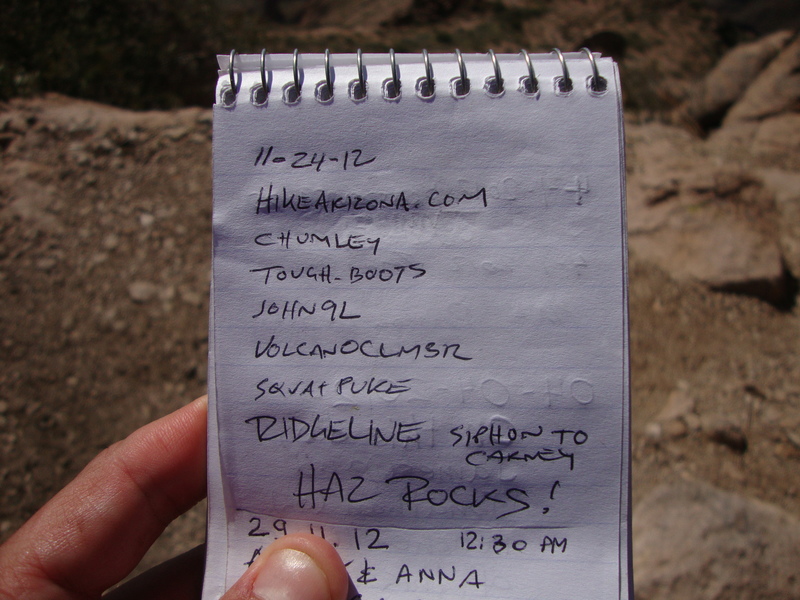 11-24-12
HIKEARIZONA.COM
CHUMLEY
TOUGH-BOOTS
JOHN9L
VOLCANOCLMBR
SQUATPUKE
RIDGELINE SIPHON TO
CARNEY
HAZ ROCKS!
29.11.12 12:30 AM
& ANNA